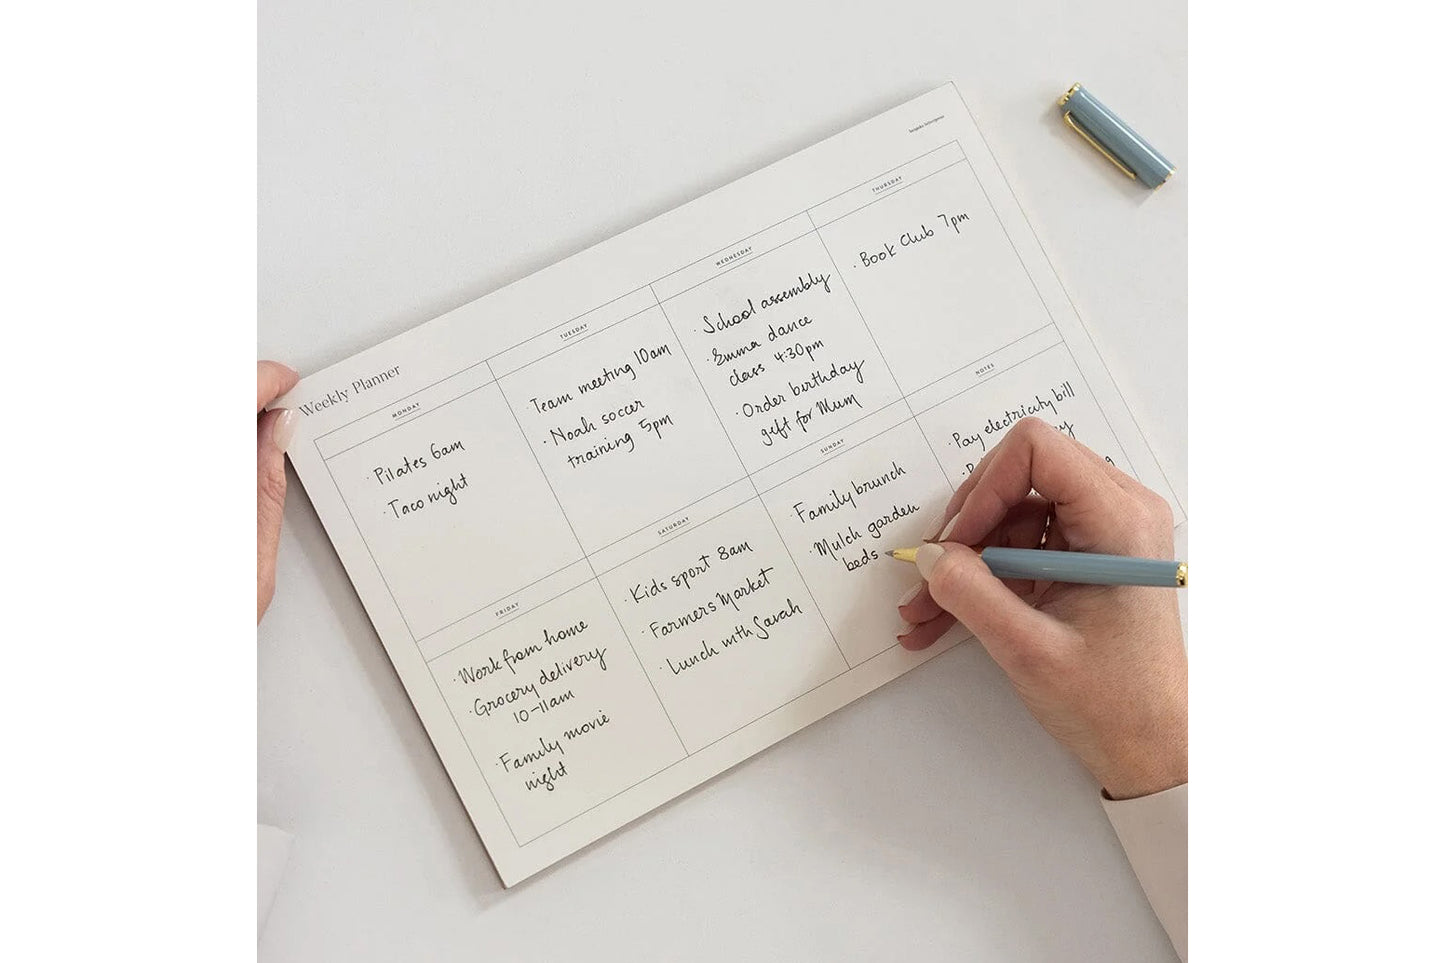 Weekly Planner
MONDAY
· Pilates 6am
· Taco night
TUESDAY
· Team meeting 10am
· Noah soccer
training 5pm
WEDNESDAY
· School assembly
· Emma dance
class 4:30pm
· Order birthday
gift for Mum
THURSDAY
· Book Club 7pm
FRIDAY
· Work from home
· Grocery delivery
10-11am
· Family movie
night
SATURDAY
· Kids sport 8am
· Farmers Market
· Lunch with Sarah
SUNDAY
· Family brunch
· Mulch garden
beds
NOTES
· Pay electricity bill